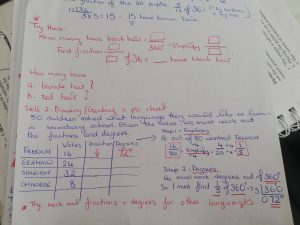 fraction of the 36 pupils 5/12 of 36 = (÷ by bottom
12|36 × by top)
3 × 5 = 15 15 have brown hair
* Try these
How many have black hair □/360° = Simplify □/□
Find fraction □/□ of 36 = __ have black hair
How many have
a. blonde hair?
b. red hair?
Skill 2: Drawing/Creating a pie chart
80 children asked what language they would like to learn
in secondary school. Given the votes you must work out
the fractions and degrees
Votes Fraction Degrees
FRENCH 16 1/5 72°
GERMAN 24
SPANISH 32
CHINESE 8
Step 1 = Fractions
16 out of 80 wanted FRENCH
16/80 = Simplify ÷4/÷4 = 4/20 ÷4/÷4 = 1/5
Step 2 = Degrees
We must work degrees out of 360°
So I must find 1/5 of 360° => 5|360
072°
* Try work out fractions + degrees for other languages